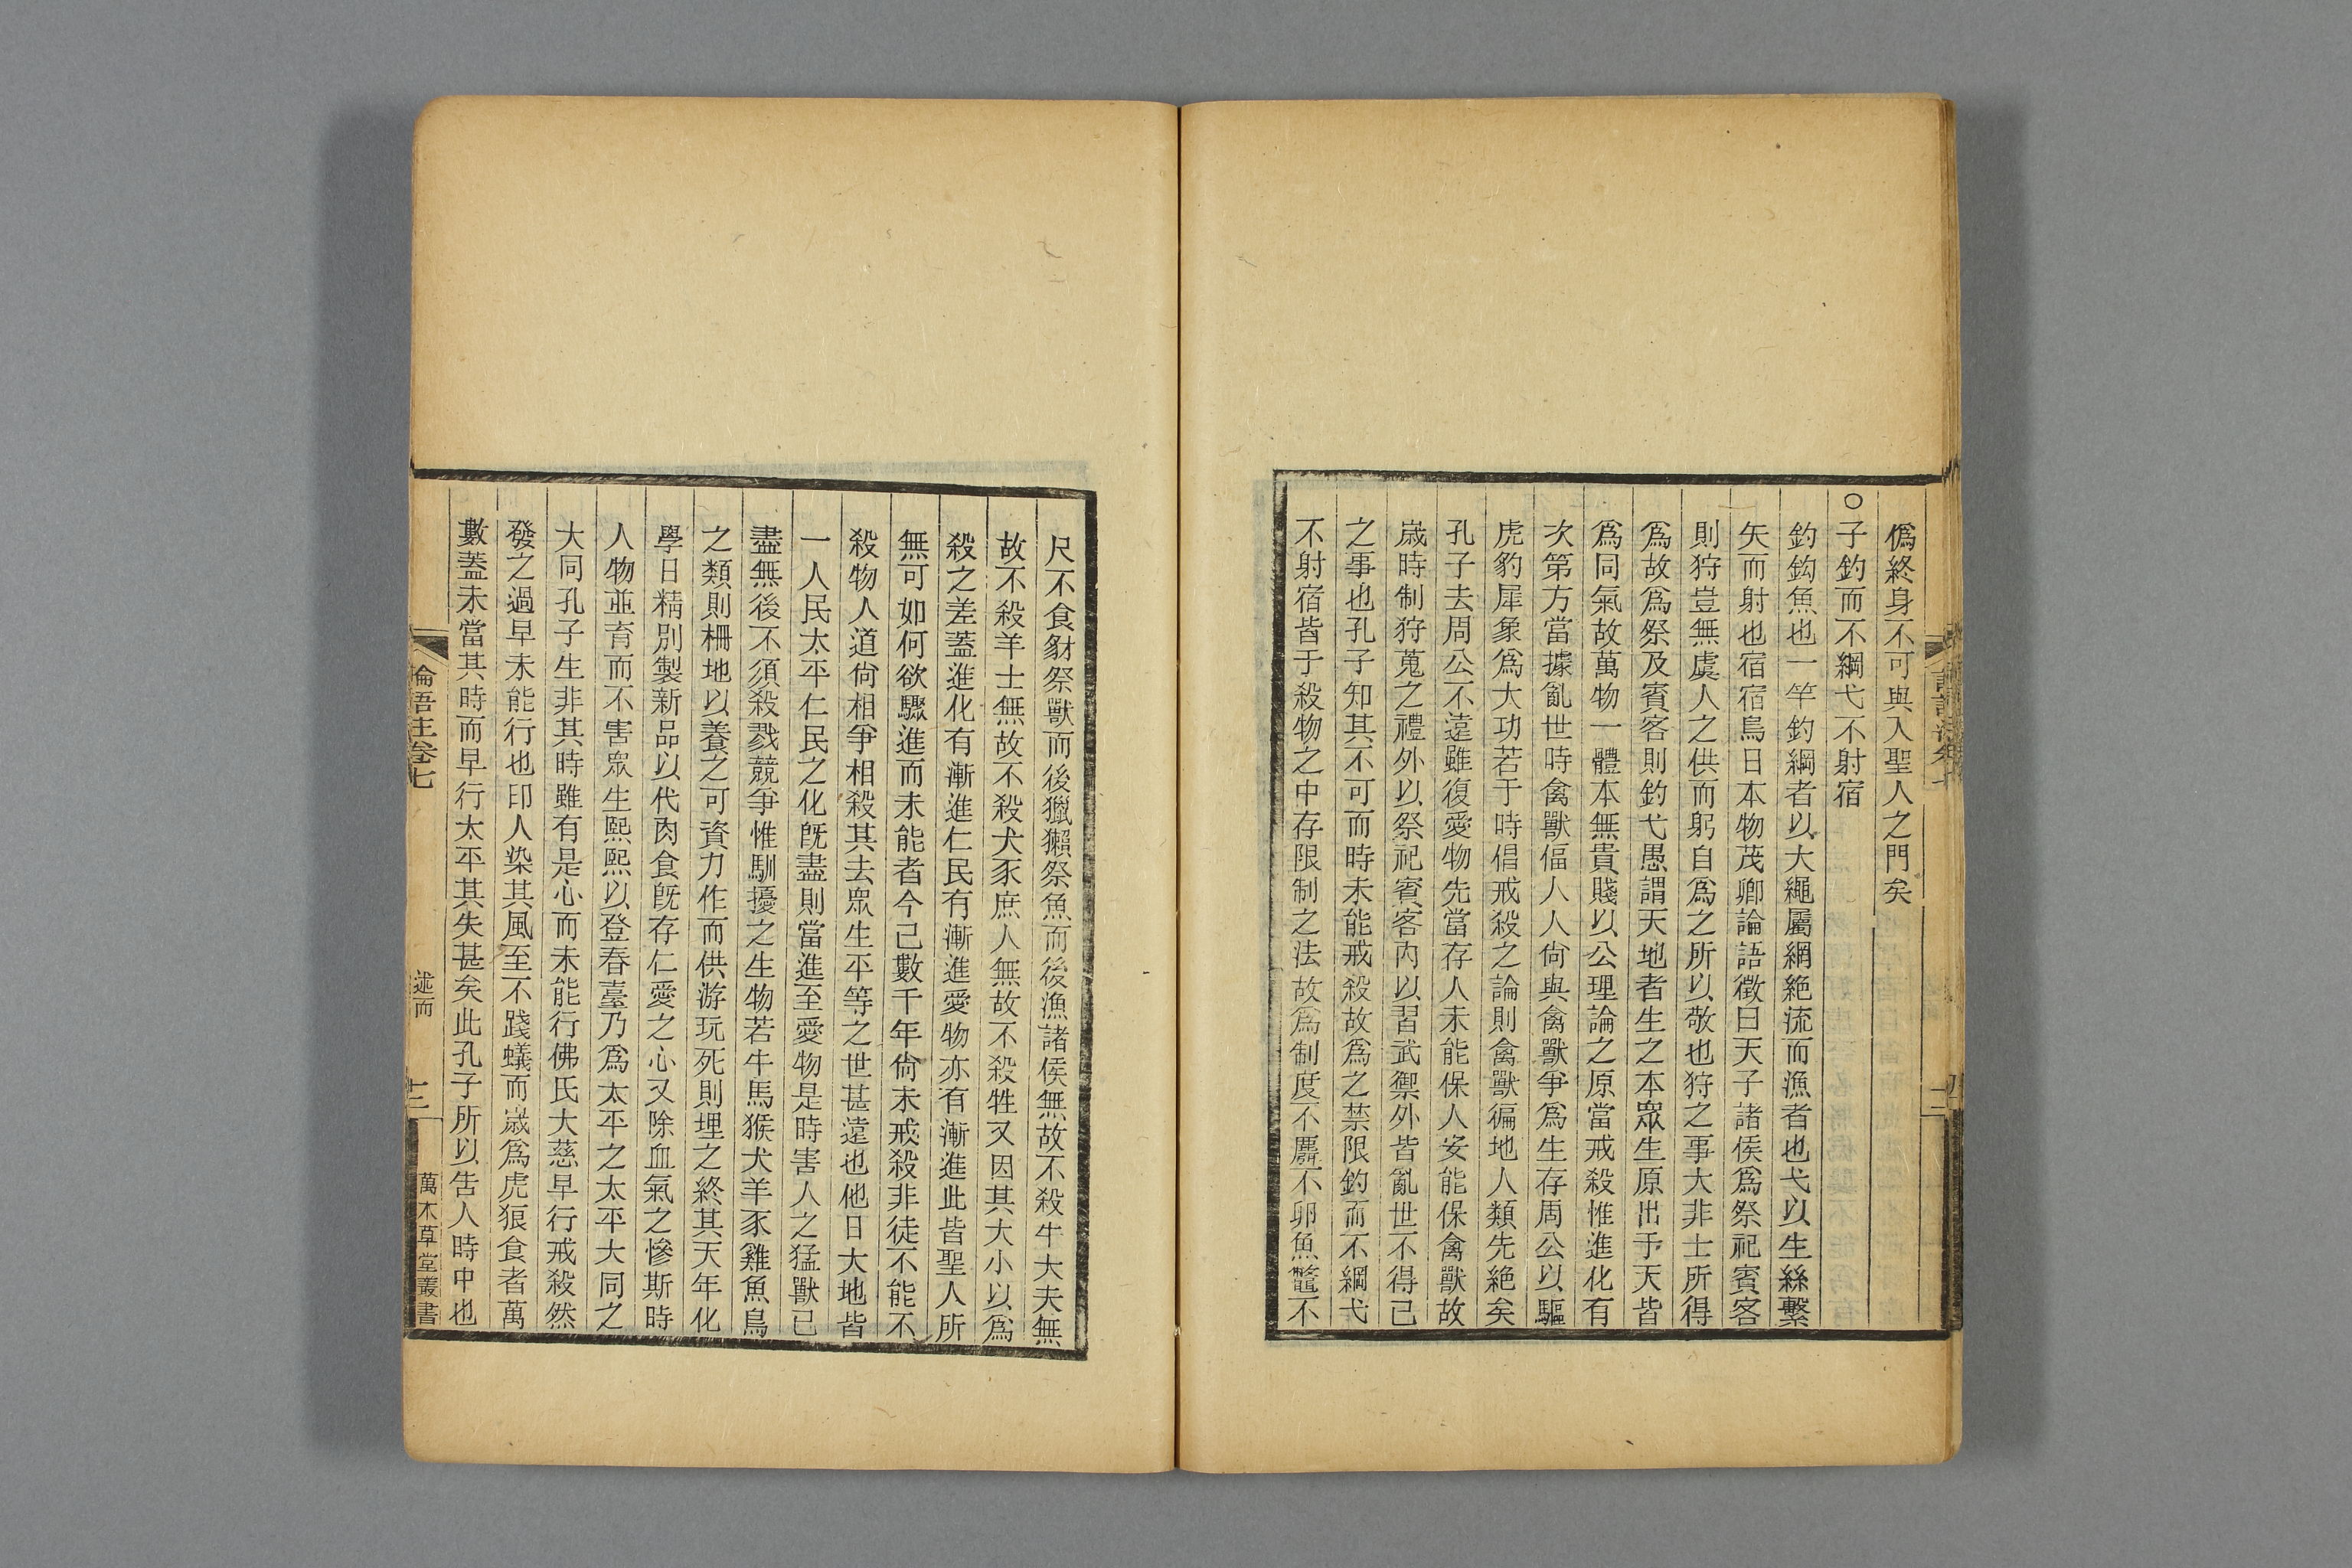 僞終身不可與入聖人之門矣
○子釣而不綱弋不射宿
釣鈎魚也一竿釣綱者以大繩屬網絶流而漁者也弋以生絲繫
矢而射也宿宿鳥日本物茂卿論語徵曰天子諸侯爲祭祀賓客
則狩豈無虞人之供而躬自爲之所以敬也狩之事大非士所得
爲故爲祭及賓客則釣弋愚謂天地者生之本眾生原出于天皆
爲同氣故萬物一體本無貴賤以公理論之原當戒殺惟進化有
次第方當據亂世時禽獸偪人人尙與禽獸爭爲生存周公以驅
虎豹犀象爲大功若于時倡戒殺之論則禽獸徧地人類先絶矣
孔子去周公不遠雖復愛物先當存人未能保人安能保禽獸故
歲時制狩蒐之禮外以祭祀賓客內以習武禦外皆亂世不得已
之事也孔子知其不可而時未能戒殺故爲之禁限釣而不綱弋
不射宿皆于殺物之中存限制之法故爲制度不麛不卵魚鼈不
尺不食豺祭獸而後獵獺祭魚而後漁諸侯無故不殺牛大夫無
故不殺羊士無故不殺犬豕庶人無故不殺牲又因其大小以爲
殺之差蓋進化有漸進仁民有漸進愛物亦有漸進此皆聖人所
無可如何欲驟進而未能者今已數千年尙未戒殺非徒不能不
殺物人道尙相爭相殺其去眾生平等之世甚遠也他日大地皆
一人民太平仁民之化旣盡則當進至愛物是時害人之猛獸已
盡無後不須殺戮競爭惟馴擾之生物若牛馬猴犬羊豕雞魚鳥
之類則柵地以養之可資力作而供游玩死則埋之終其天年化
學日精別製新品以代肉食旣存仁愛之心又除血氣之慘斯時
人物並育而不害眾生熙熙以登春臺乃爲太平之太平大同之
大同孔子生非其時雖有是心而未能行佛氏大慈早行戒殺然
發之過早未能行也印人染其風至不踐蟻而歲爲虎狼食者萬
數蓋未當其時而早行太平其失甚矣此孔子所以吿人時中也
論語注卷七
述而
十二
萬木草堂叢書